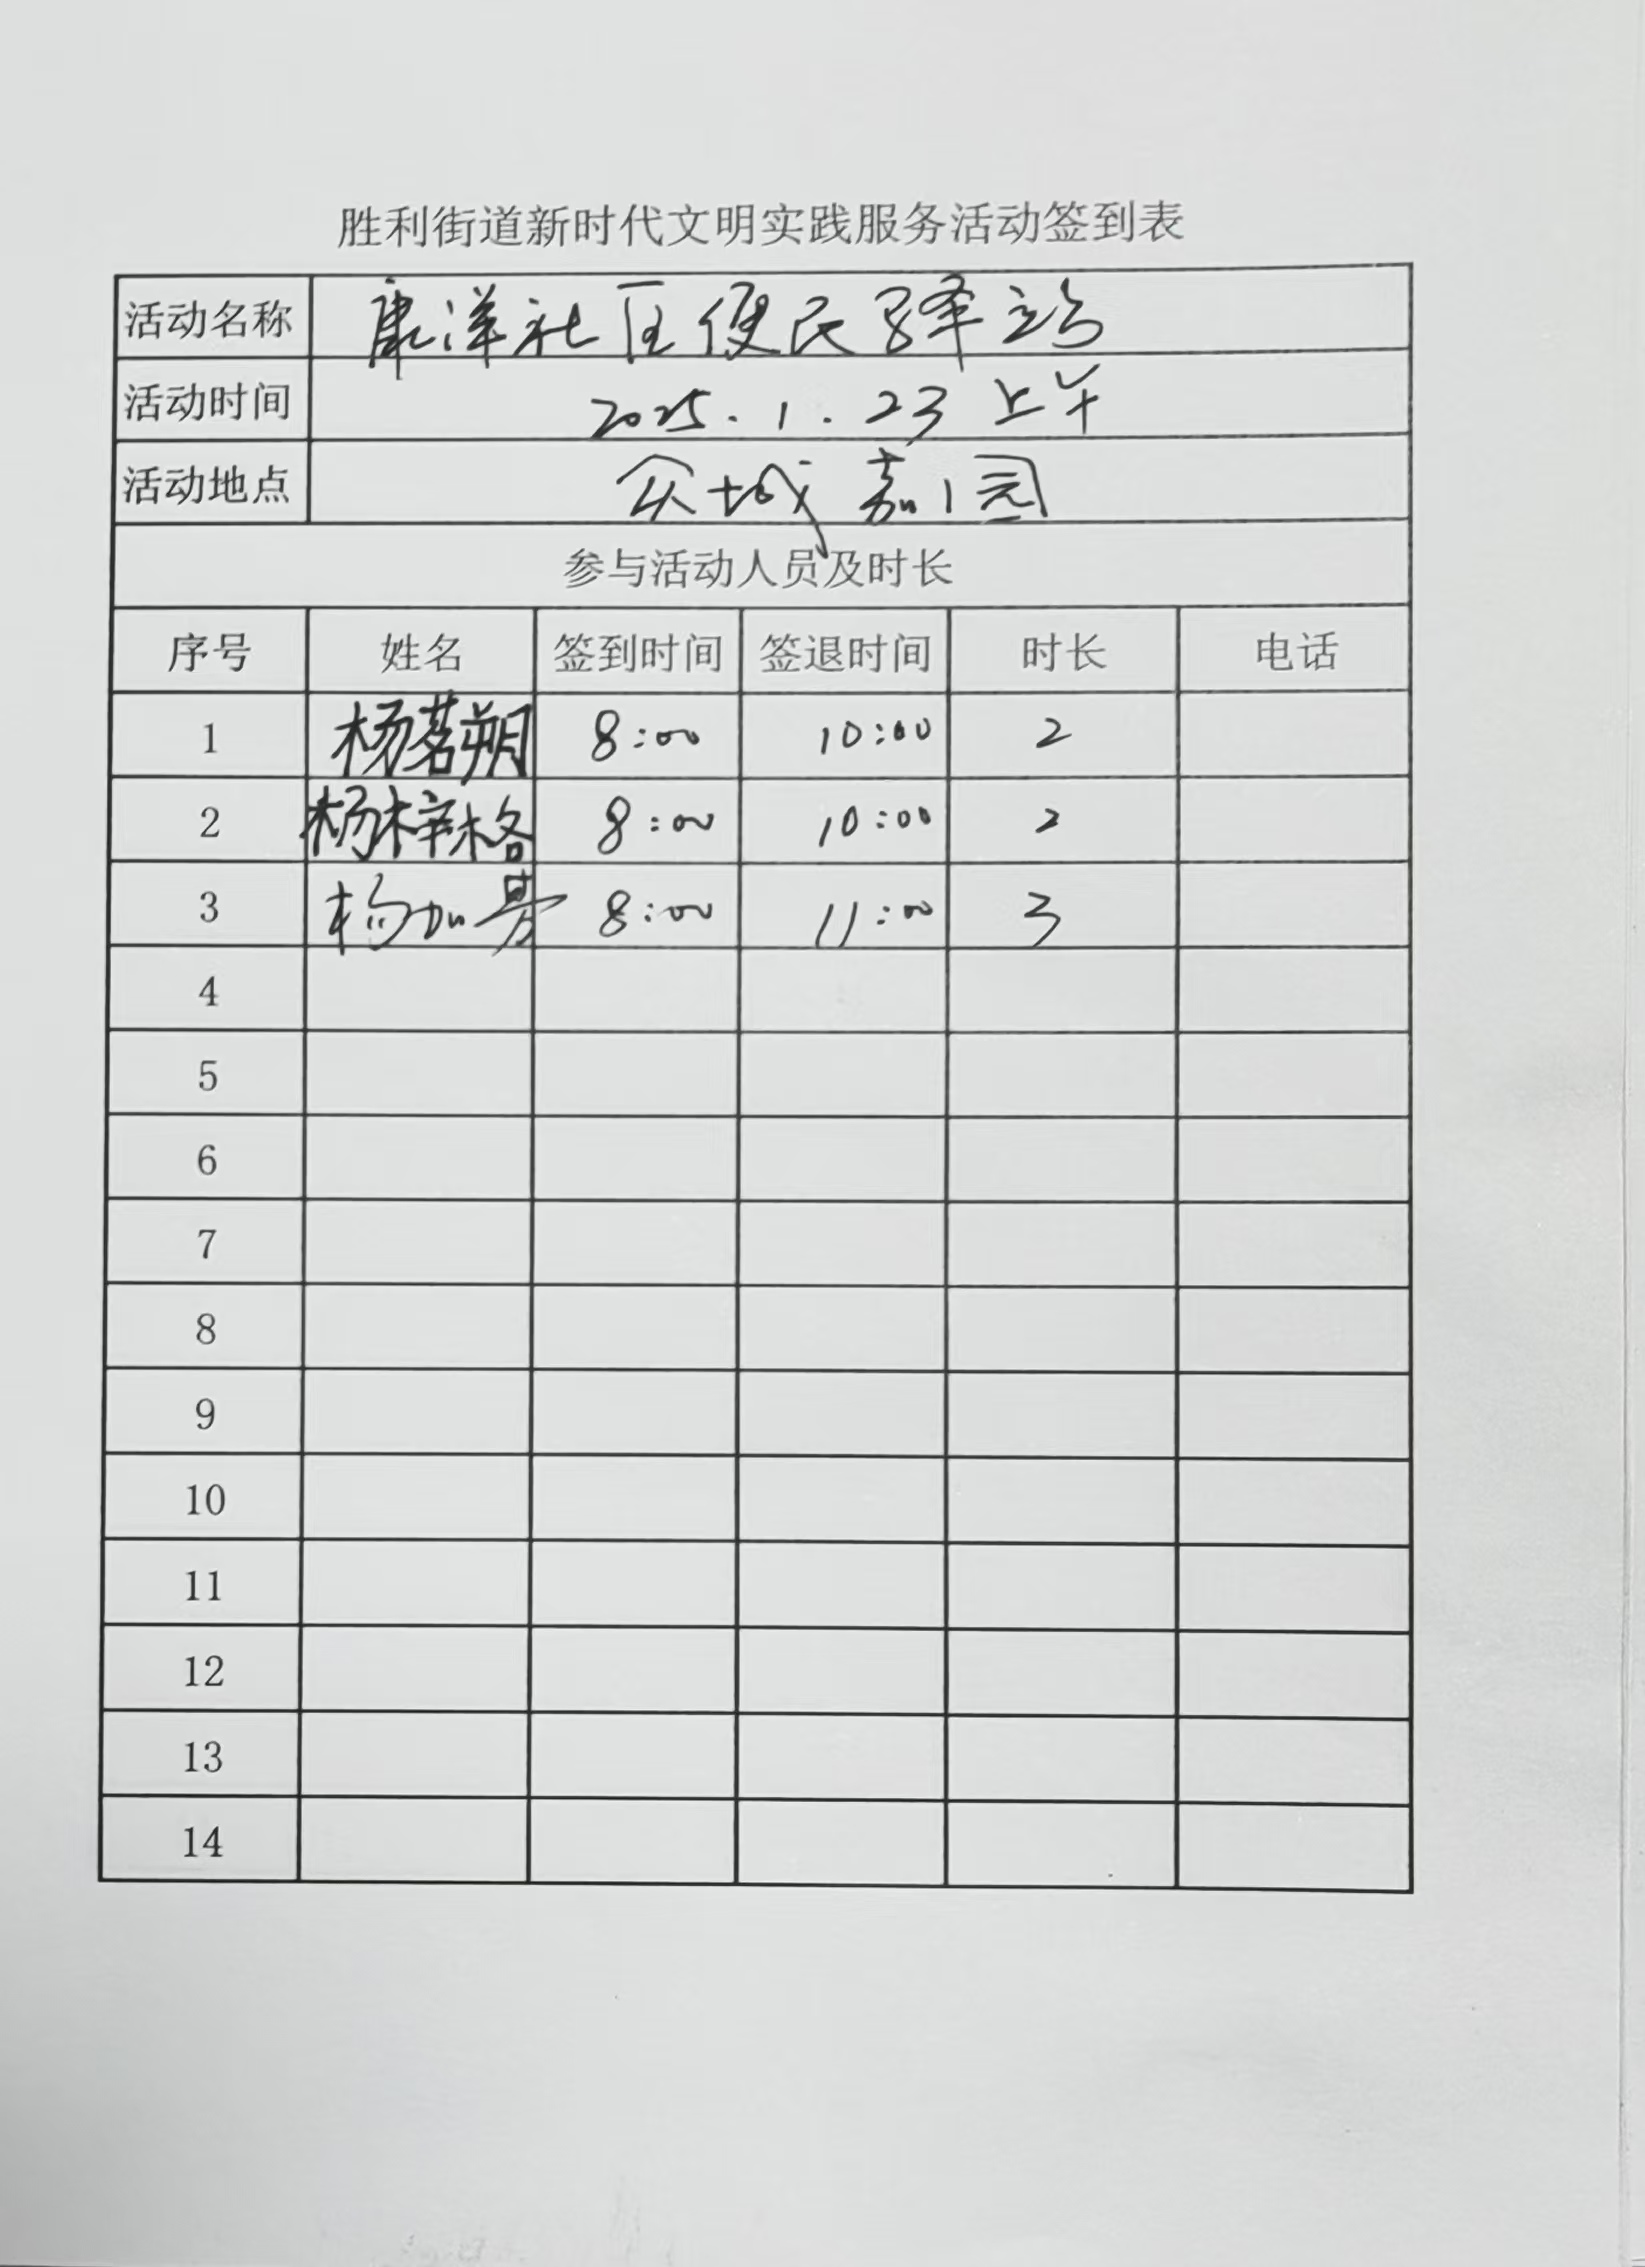 胜利街道新时代文明实践服务活动签到表
活动名称 康洋社区便民驿站
活动时间 2025.1.23 上午
活动地点 众城嘉园
参与活动人员及时长
序号 姓名 签到时间 签退时间 时长 电话
1 杨茗朔 8:00 10:00 2
2 杨梓格 8:00 10:00 2
3 杨加 8:00 11:00 3
4
5
6
7
8
9
10
11
12
13
14